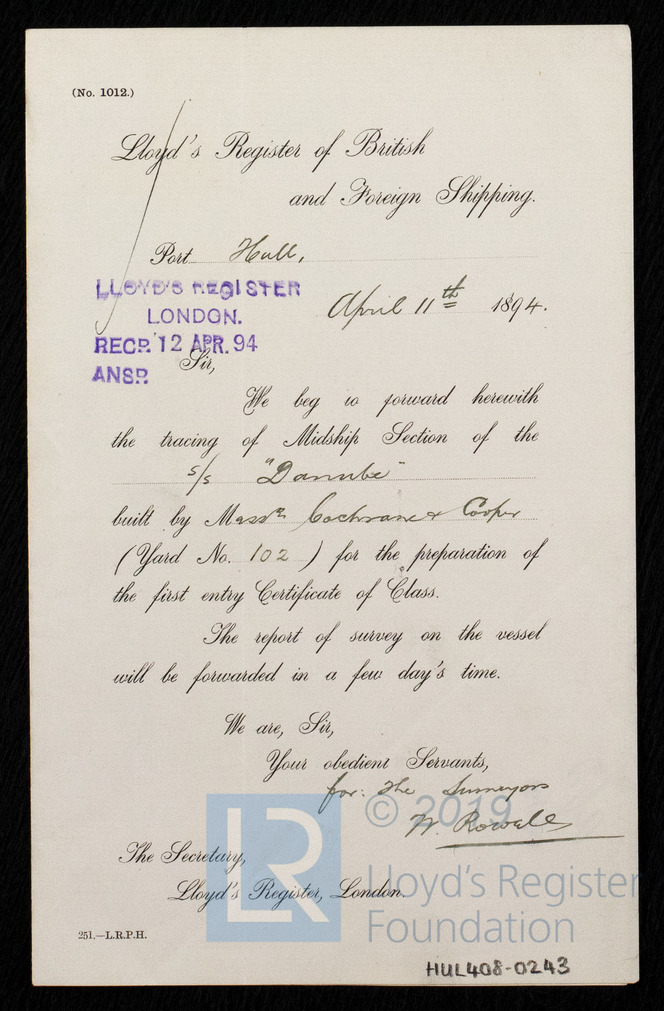 (No. 1012.)
Lloyd's Register of British
and Foreign Shipping.
Port Hull,
LLOYD'S REGISTER
LONDON.
RECD. 12 APR. 94
ANSD.
April 11th 1894.
Sir,
We beg to forward herewith
the tracing of Midship Section of the
s/s "Danube"
built by Messrs Cochrane & Cooper
(Yard No. 102) for the preparation of
the first entry Certificate of Class.
The report of survey on the vessel
will be forwarded in a few day's time.
We are, Sir,
Your obedient Servants,
for: The Surveyors
W. Rowell
The Secretary,
Lloyd's Register, London.
251.—L.R.P.H.
LR
© 2019
Lloyd's Register
Foundation
HUL408-0243